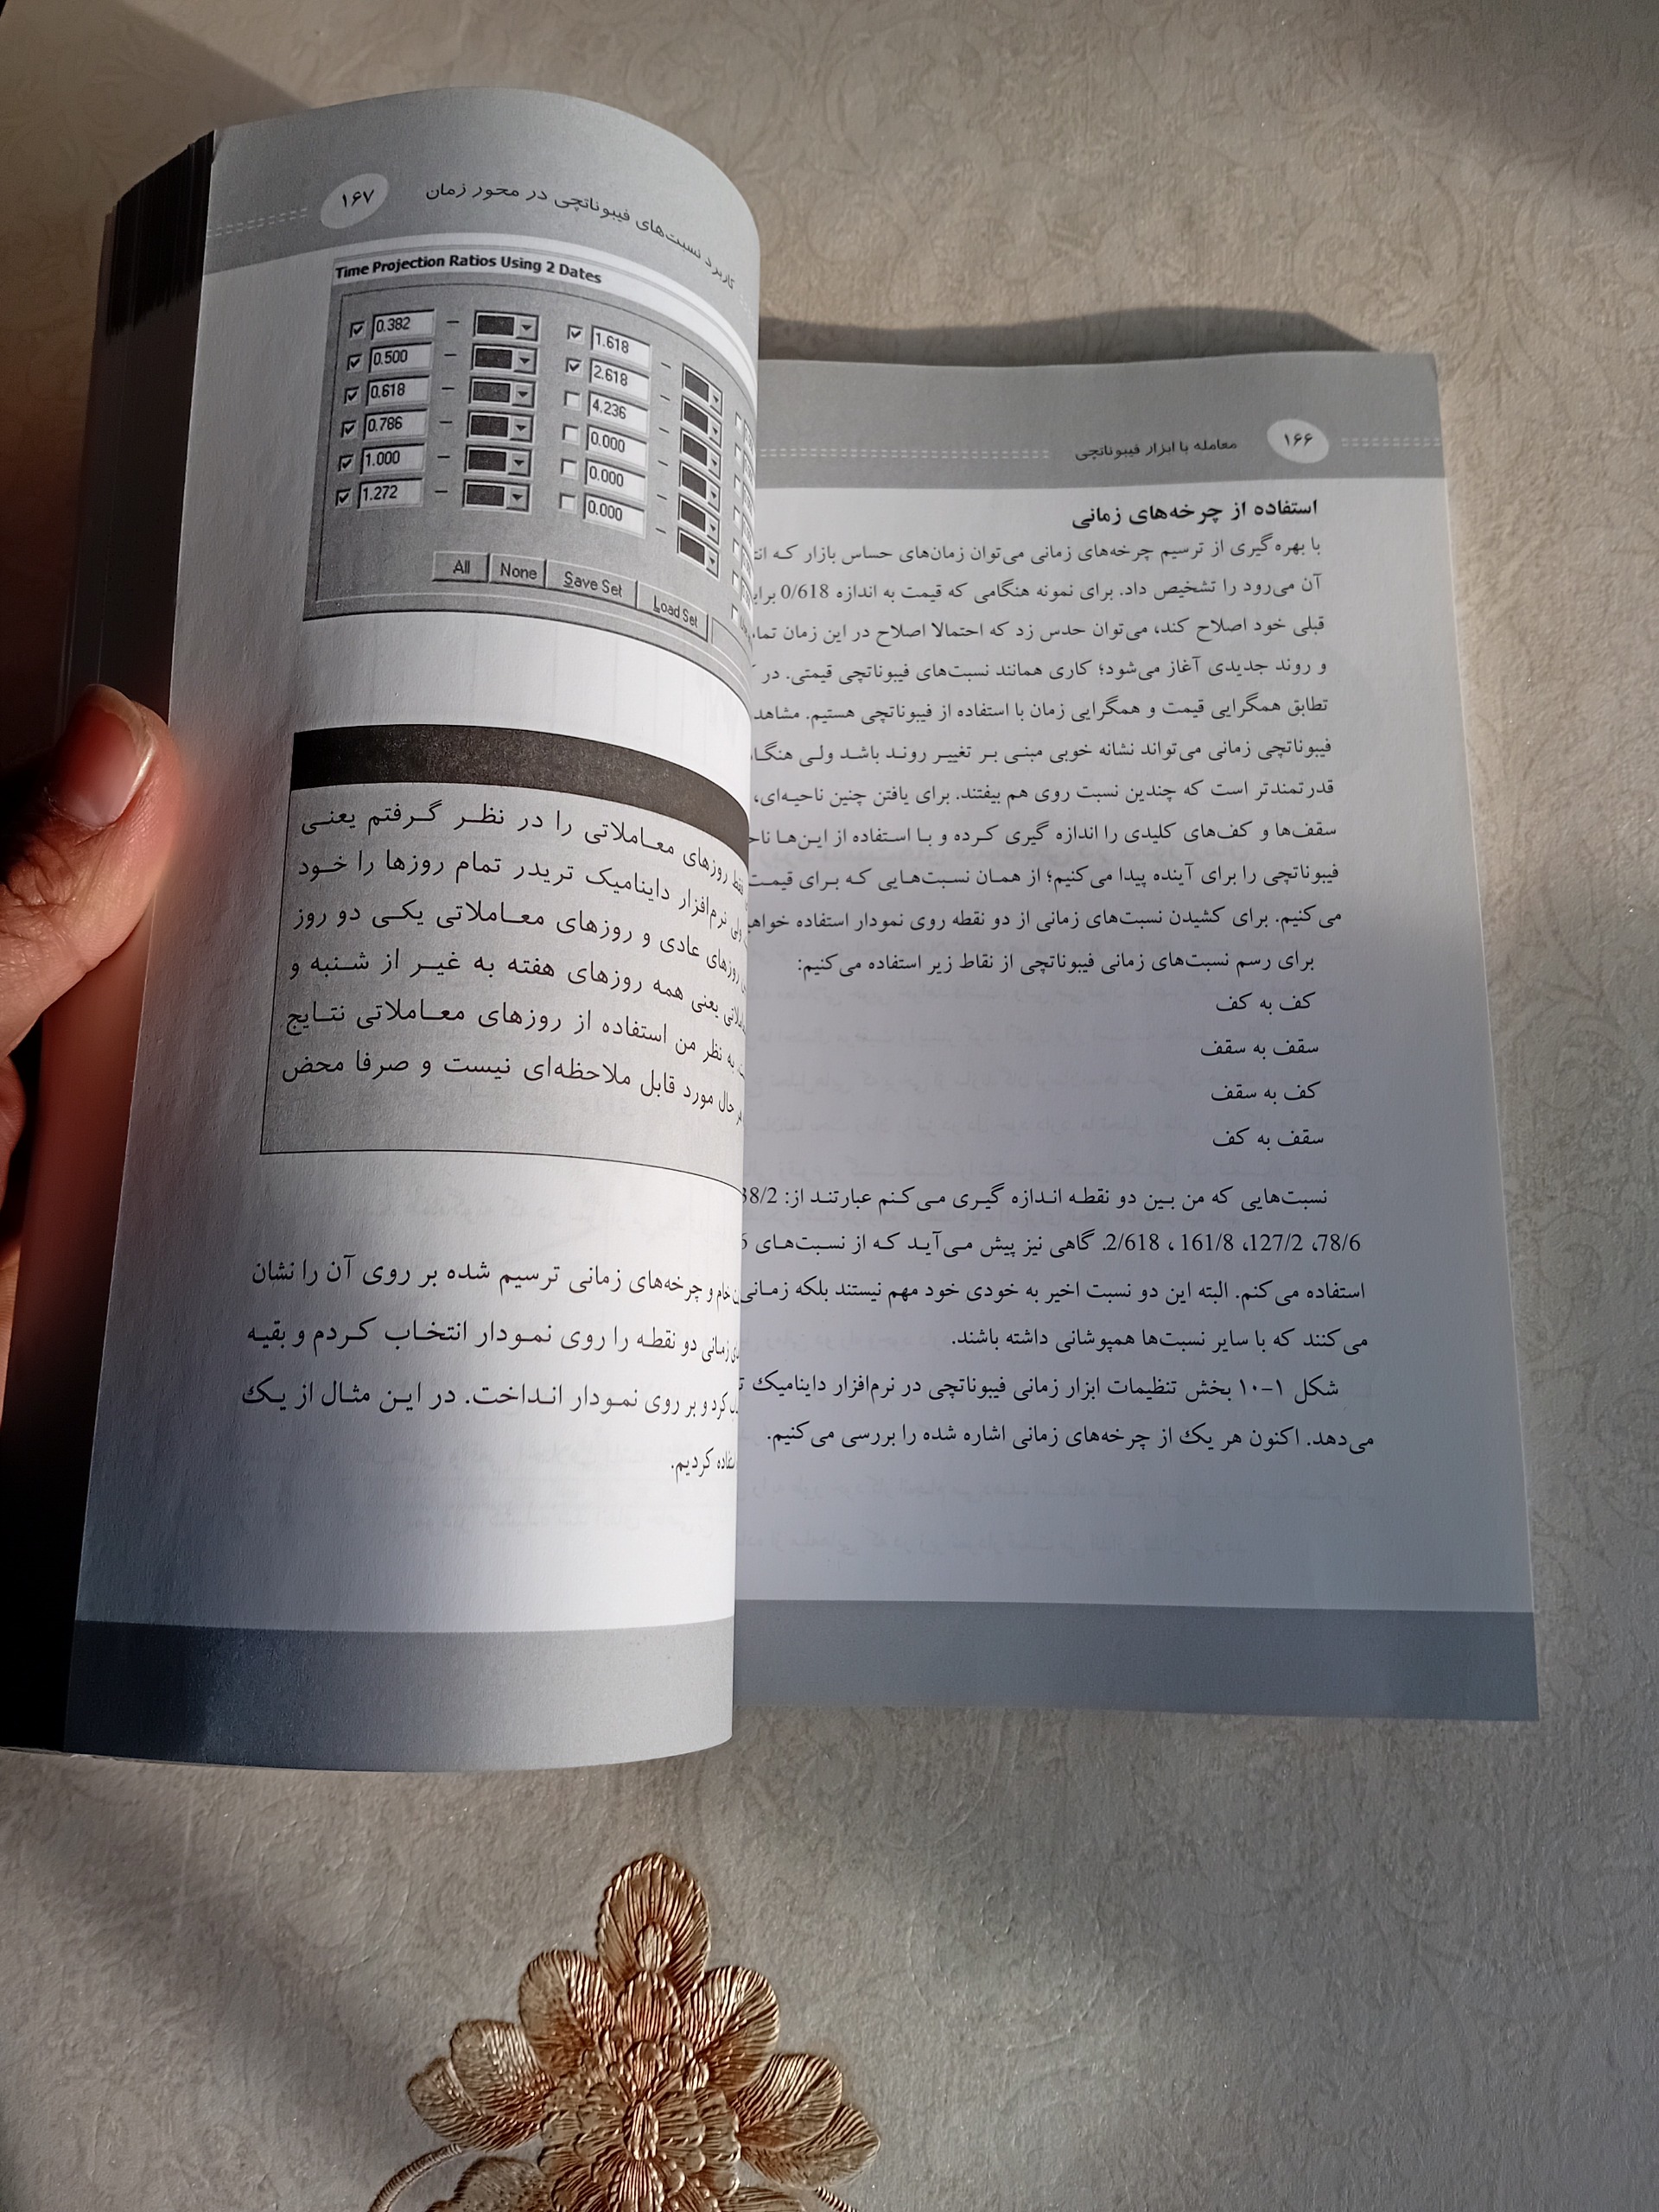 ۱۶۶
معامله با ابزار فیبوناتچی
استفاده از چرخه‌های زمانی
با بهره‌گیری از ترسیم چرخه‌های زمانی می‌توان زمان‌های حساس بازار که
آن می‌رود را تشخیص داد. برای نمونه هنگامی که قیمت به اندازه 0/618
قبلی خود اصلاح کند، می‌توان حدس زد که احتمالا اصلاح در این زمان
و روند جدیدی آغاز می‌شود؛ کاری همانند نسبت‌های فیبوناتچی قیمتی. در
تطابق همگرایی قیمت و همگرایی زمان با استفاده از فیبوناتچی هستیم.
فیبوناتچی زمانی می‌تواند نشانه خوبی مبنی بر تغییر روند باشد ولی
قدرتمندتر است که چندین نسبت روی هم بیفتند. برای یافتن چنین ناحیه‌ای،
سقف‌ها و کف‌های کلیدی را اندازه گیری کرده و با استفاده از این‌ها
فیبوناتچی را برای آینده پیدا می‌کنیم؛ از همان نسبت‌هایی که برای قیمت
می‌کنیم. برای کشیدن نسبت‌های زمانی از دو نقطه روی نمودار استفاده
برای رسم نسبت‌های زمانی فیبوناتچی از نقاط زیر استفاده می‌کنیم:
کف به کف
سقف به سقف
کف به سقف
سقف به کف
نسبت‌هایی که من بین دو نقطه اندازه گیری می‌کنم عبارتند از:
78/6، 127/2، 161/8 ، 2/618. گاهی نیز پیش می‌آید که از نسبت‌های
استفاده می‌کنم. البته این دو نسبت اخیر به خودی خود مهم نیستند بلکه زمانی
می‌کنند که با سایر نسبت‌ها همپوشانی داشته باشند.
شکل ۱-۱۰ بخش تنظیمات ابزار زمانی فیبوناتچی در نرم‌افزار داینامیک
می‌دهد. اکنون هر یک از چرخه‌های زمانی اشاره شده را بررسی می‌کنیم.
کاربرد نسبت‌های فیبوناتچی در محور زمان
۱۶۷
Time Projection Ratios Using 2 Dates
0.382 – 1.618 –
0.500 – 2.618 –
0.618 – 4.236 –
0.786 – 0.000 –
1.000 – 0.000 –
1.272 – 0.000 –
All None Save Set Load Set
روزهای معاملاتی را در نظر گرفتم یعنی
نرم‌افزار داینامیک تریدر تمام روزها را خود
روزهای عادی و روزهای معاملاتی یکی دو روز
یعنی همه روزهای هفته به غیر از شنبه و
به نظر من استفاده از روزهای معاملاتی نتایج
حال مورد قابل ملاحظه‌ای نیست و صرفا محض
خام و چرخه‌های زمانی ترسیم شده بر روی آن را نشان
زمانی دو نقطه را روی نمودار انتخاب کردم و بقیه
کرد و بر روی نمودار انداخت. در این مثال از یک
کردیم.